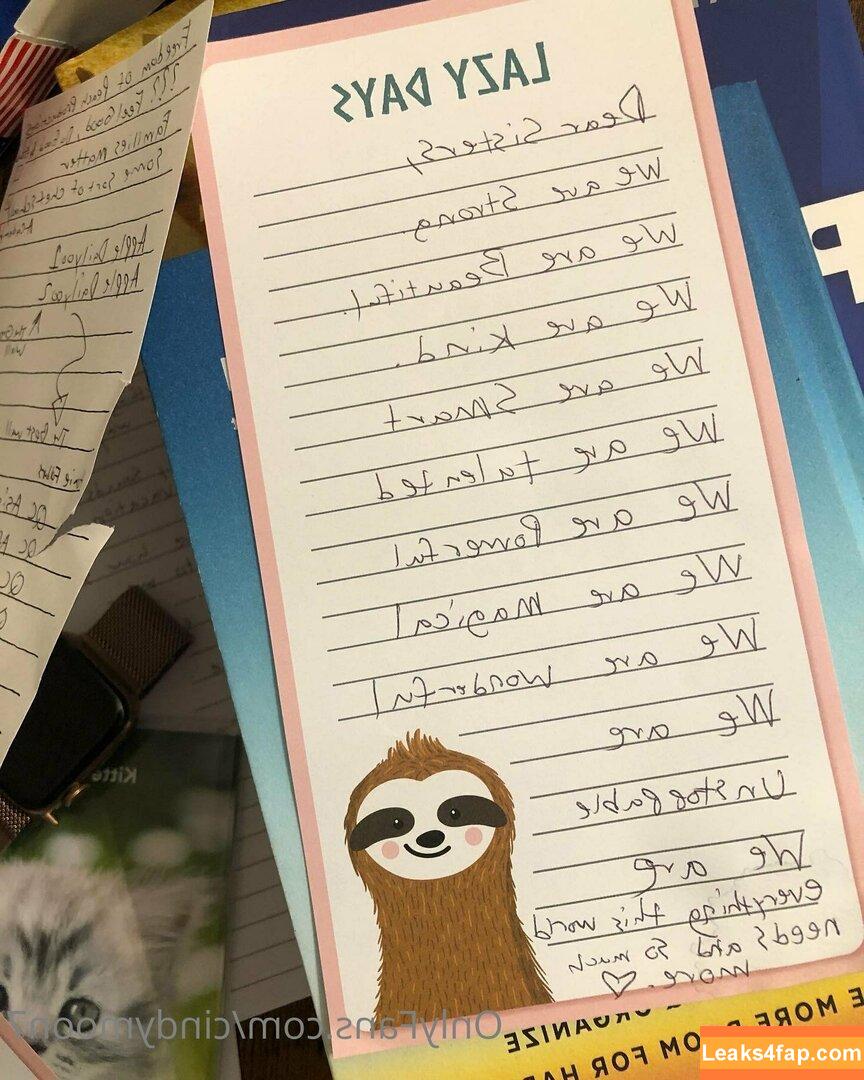 LAZY DAYS
Dear Sisters,
We are Strong.
We are Beautiful.
We are Kind.
We are Smart
We are talented
We are Powerful
We are Magical
We are Wonderful
We are
Unstoppable
We are
everything this world
needs and so much
more. ♡
Freedom of
??? Feel Good, Do Good
Families Matter
Some Sort of Chef School
Apple Daily001
Apple Daily002
Kitte
ORGANIZE
E MORE ROOM FOR HAP
OnlyFans.com/cindymoon7
Leaks4fap.com